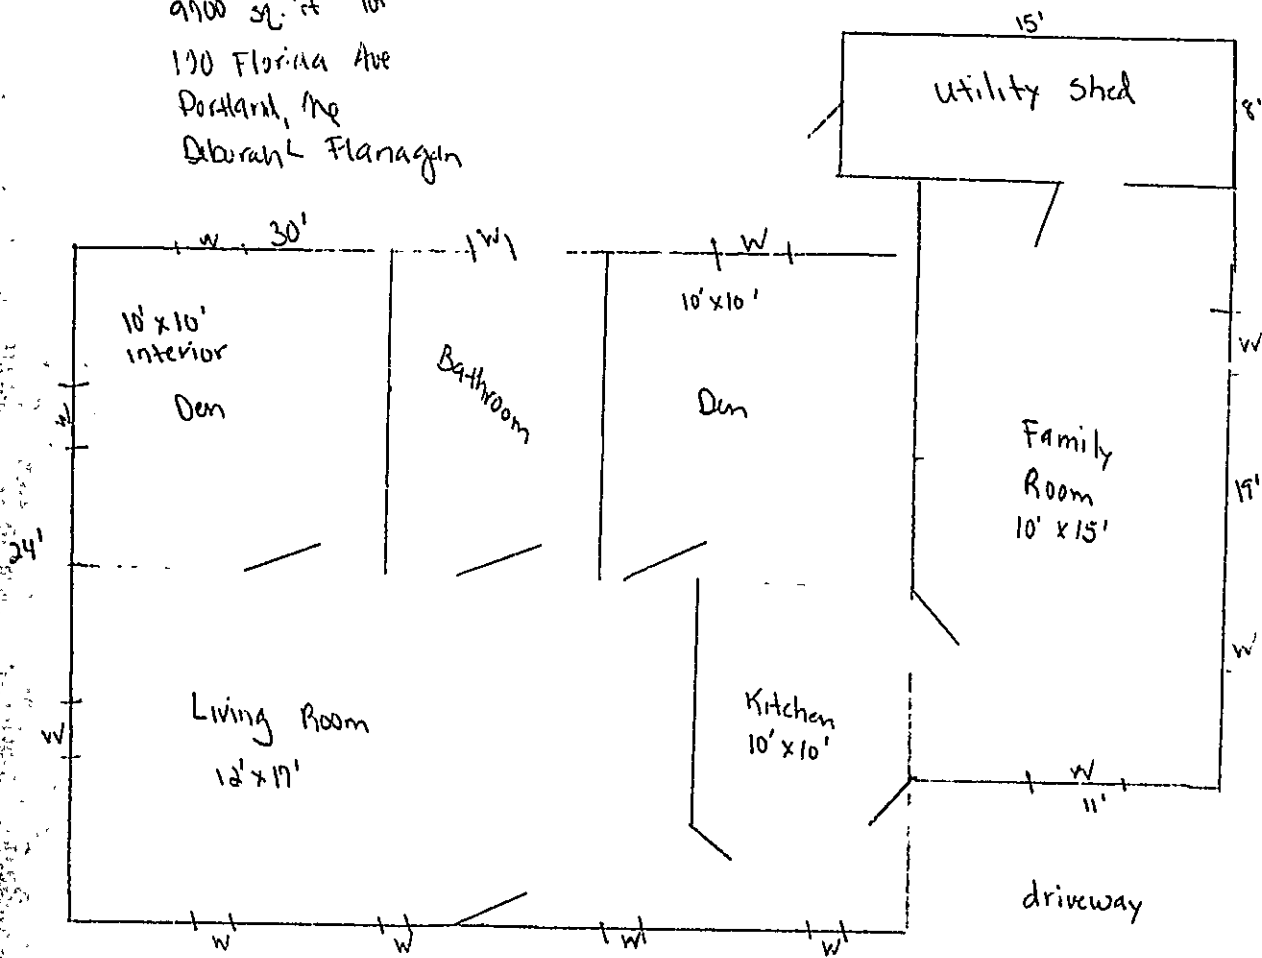 9900 sq. ft lot
190 Florida Ave
Portland, Me
Deborah L Flanagan
15'
Utility Shed
8'
W 30' W W
10' x 10'
interior
Den
Bathroom
10' x 10'
Den
W
Family
Room
10' x 15'
W
19'
24'
W
Living Room
12' x 17'
W
Kitchen
10' x 10'
W
11'
driveway
W W W W